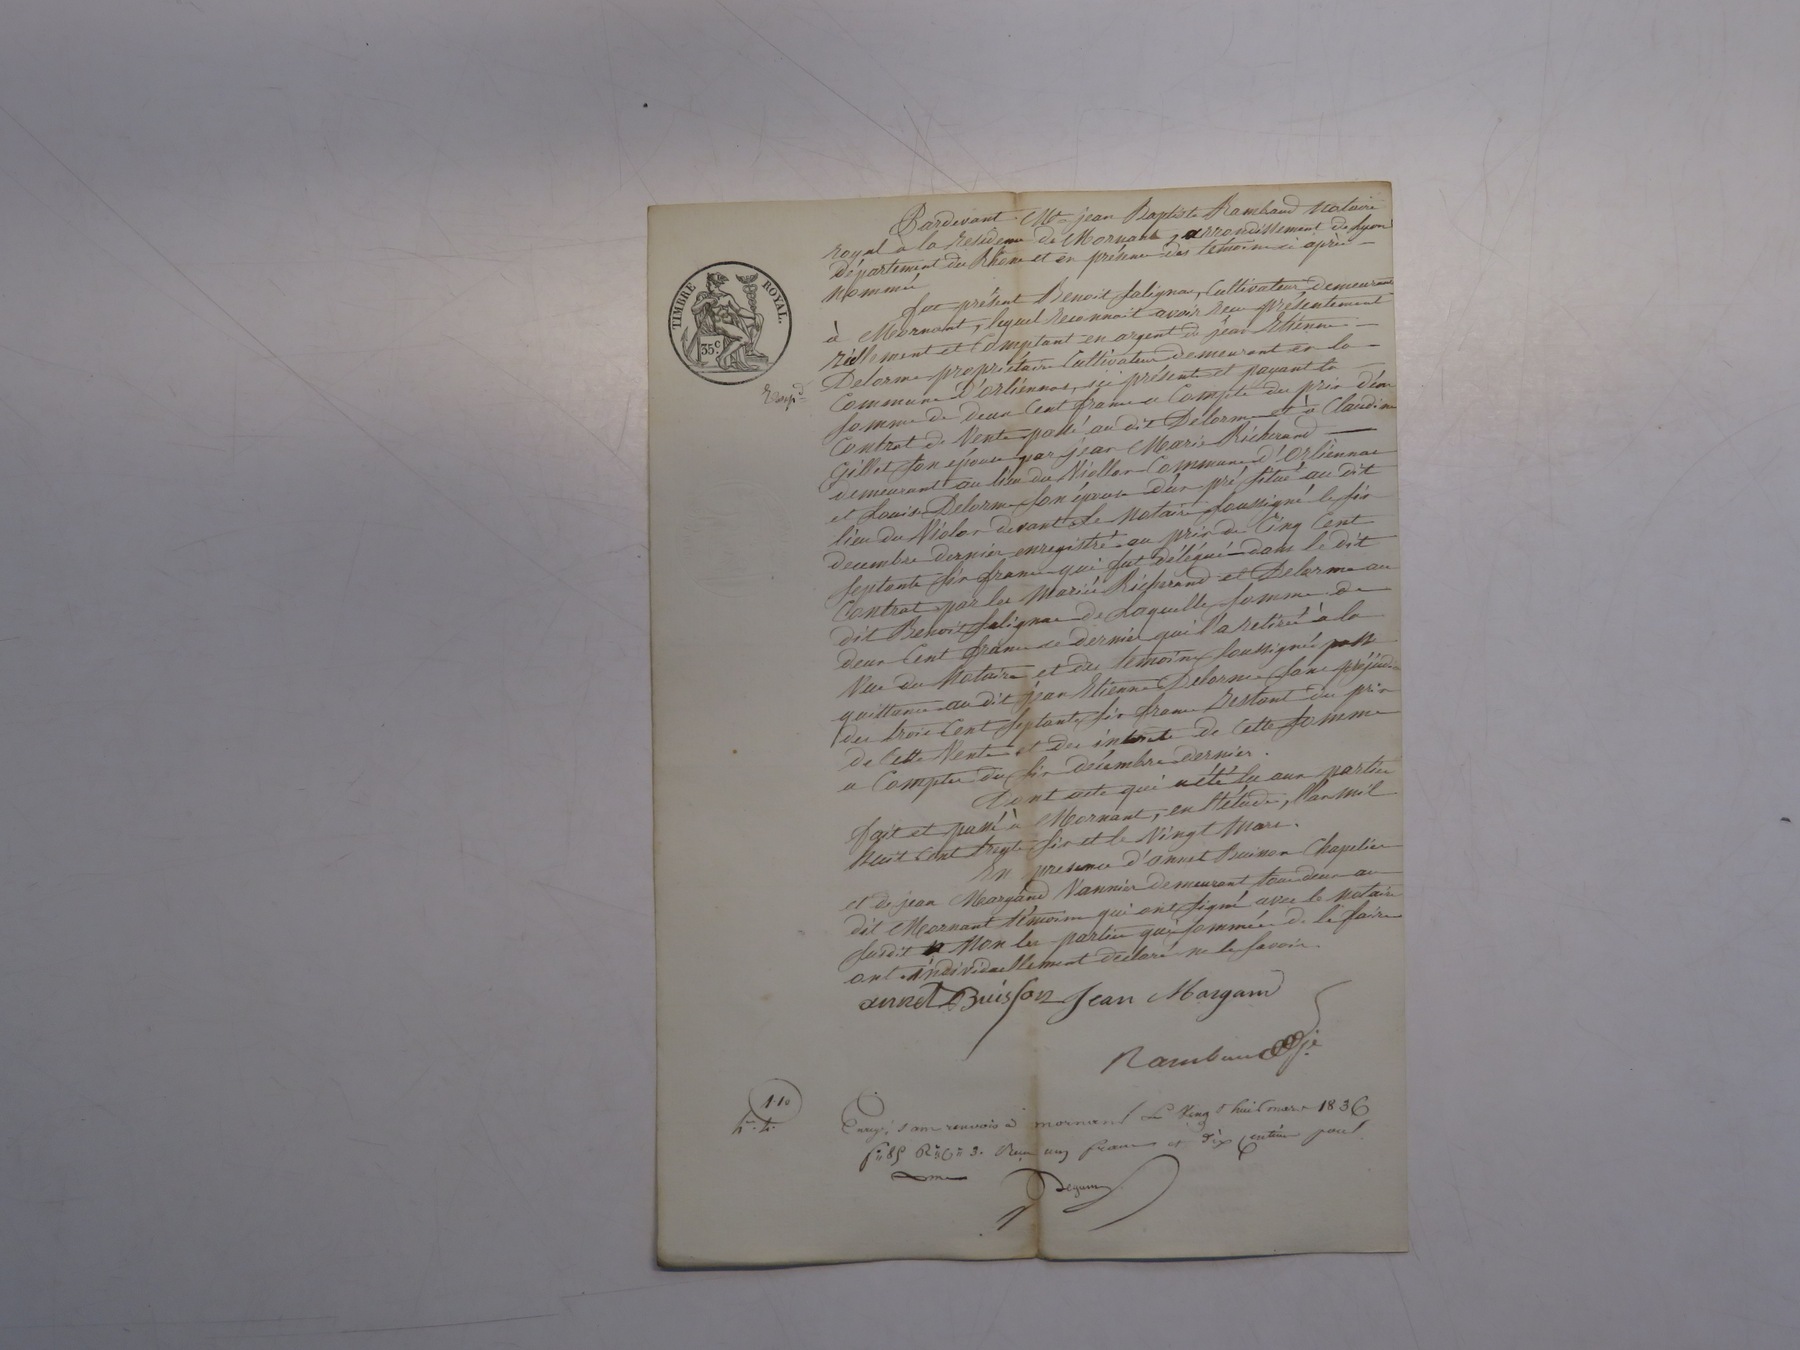 Pardevant Me jean Baptiste Rambaud Notaire
royal a la residence de Mornant, arrondissement de Lyon
département du Rhône et en présence des temoins ci après
Nommés
TIMBRE ROYAL.
35 c.
fut présent Benoit Salignac, Cultivateur demeurant
à Mornant, lequel reconnait avoir reçu présentement
réellement et Comptant en argent de jean Etienne
Delorme propriétaire Cultivateur demeurant en la
Commune d'Orliénas, ici présent et payant la
Somme de deux Cent francs a Compte du prix d'un
Contrat de Vente passé au dit Delorme et à Claudine
Gillet son épouse par jean Marie Richerand
demeurant au lieu du Violon Commune d'Orliénas
et Louise Delorme son épouse d'un pré situé au dit
lieu du Violon devant le Notaire soussigné le six
decembre dernier enregistré au prix de Cinq Cent
Septante six francs qui fut délégué dans le dit
Contrat par les Mariés Richerand et Delorme au
dit Benoit Salignac de Laquelle somme de
deux Cent francs ce dernier qui l'a retirée à la
Vue du Notaire et des temoins soussignés passe
quittance au dit jean Etienne Delorme sans préjudice
des trois Cent septante six francs restant du prix
de Cette Vente et des intérêts de Cette somme
a Compter du six décembre dernier.
Dont acte qui a été lu aux parties
fait et passé à Mornant, en l'étude, l'an mil
huit Cent trente six et le Vingt Mars.
En presence d'annet Buisson Chapelier
et de jean Margand Vannier demeurant tous deux au
dit Mornant témoins qui ont signé avec le notaire
susdit Non les parties qui sommées de le faire
ont individuellement déclaré ne le savoir.
annet Buisson Jean Margand
Rambaud
1.10
Enregé sans renvois à mornant Le Vingt huit mars 1836
fo 85 Ro Co 3. Reçu un franc et dix centimes pour